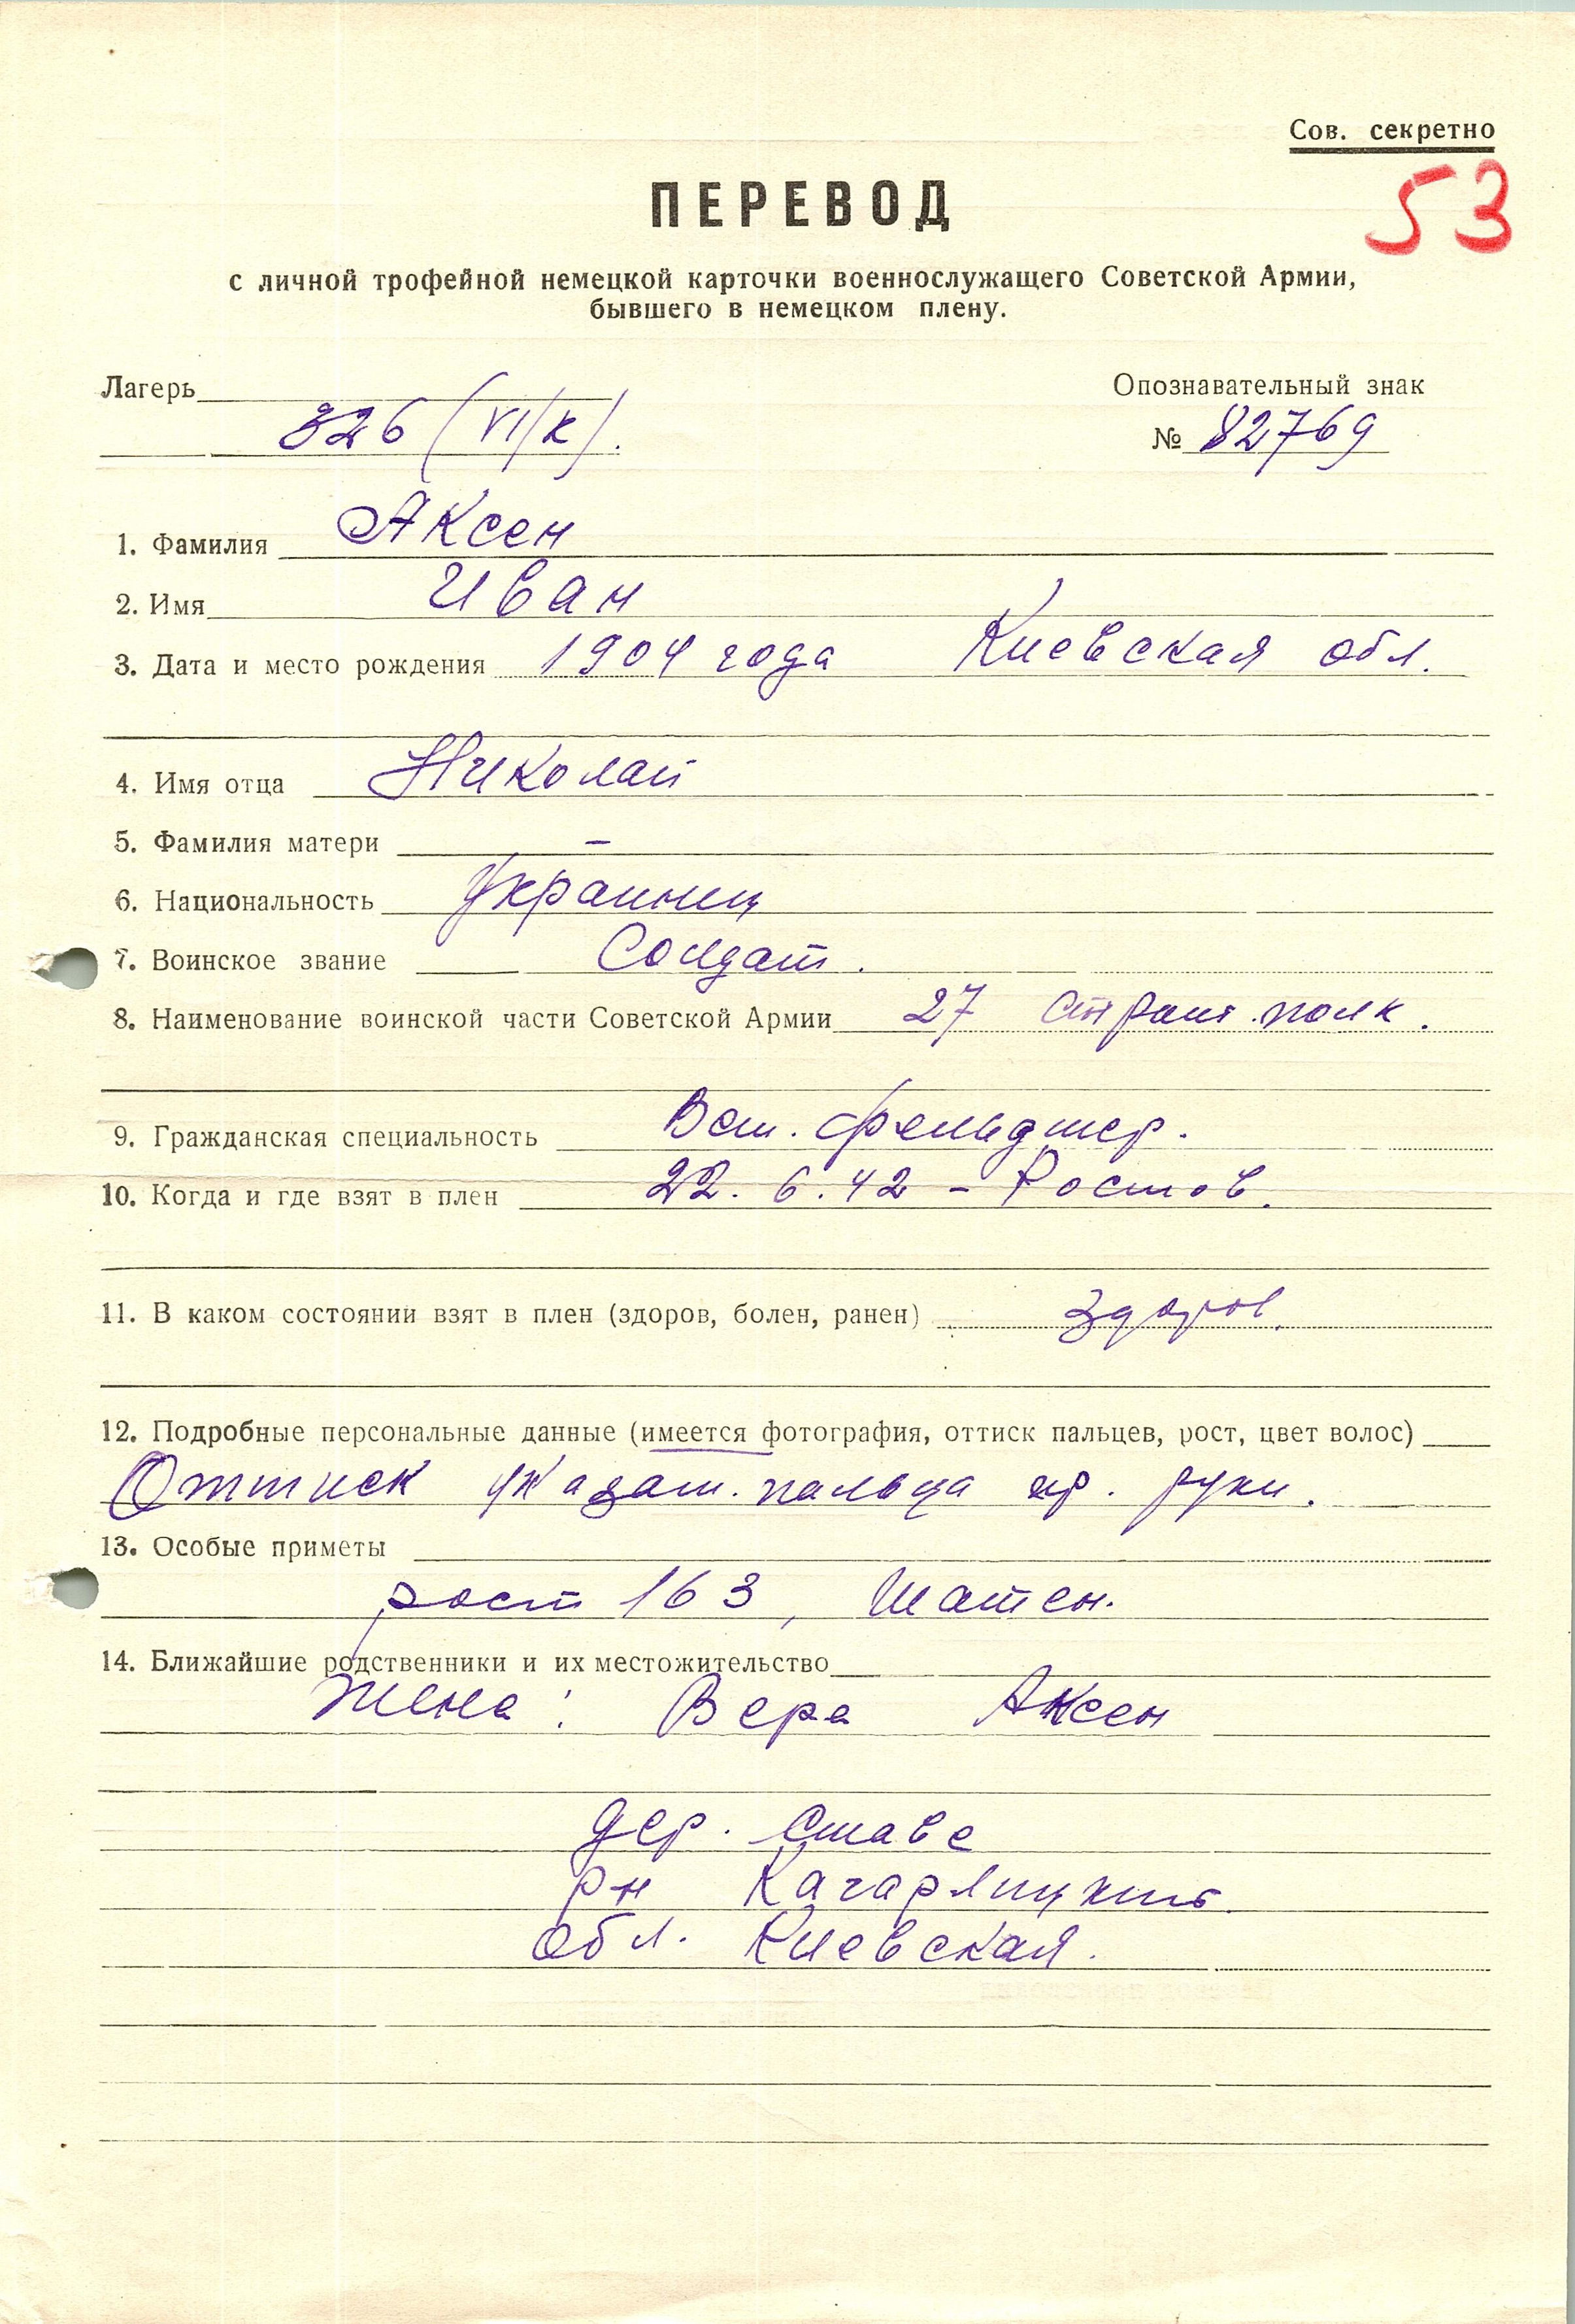 Сов. секретно
53
ПЕРЕВОД
с личной трофейной немецкой карточки военнослужащего Советской Армии,
бывшего в немецком плену.
Лагерь Опознавательный знак
326 (VI/К). № 82769
1. Фамилия Аксен
2. Имя Иван
3. Дата и место рождения 1904 года Киевская обл.
4. Имя отца Николай
5. Фамилия матери –
6. Национальность Украинец
7. Воинское звание Солдат.
8. Наименование воинской части Советской Армии 27 полк.
9. Гражданская специальность Вет. фельдшер.
10. Когда и где взят в плен 22. 6. 42 – Ростов.
11. В каком состоянии взят в плен (здоров, болен, ранен) Здоров.
12. Подробные персональные данные (имеется фотография, оттиск пальцев, рост, цвет волос)
Оттиск указат. пальца пр. руки.
13. Особые приметы
рост 163, Шатен.
14. Ближайшие родственники и их местожительство
Жена: Вера Аксен
дер. Ставе
рн Кагарлицкий.
обл. Киевская.